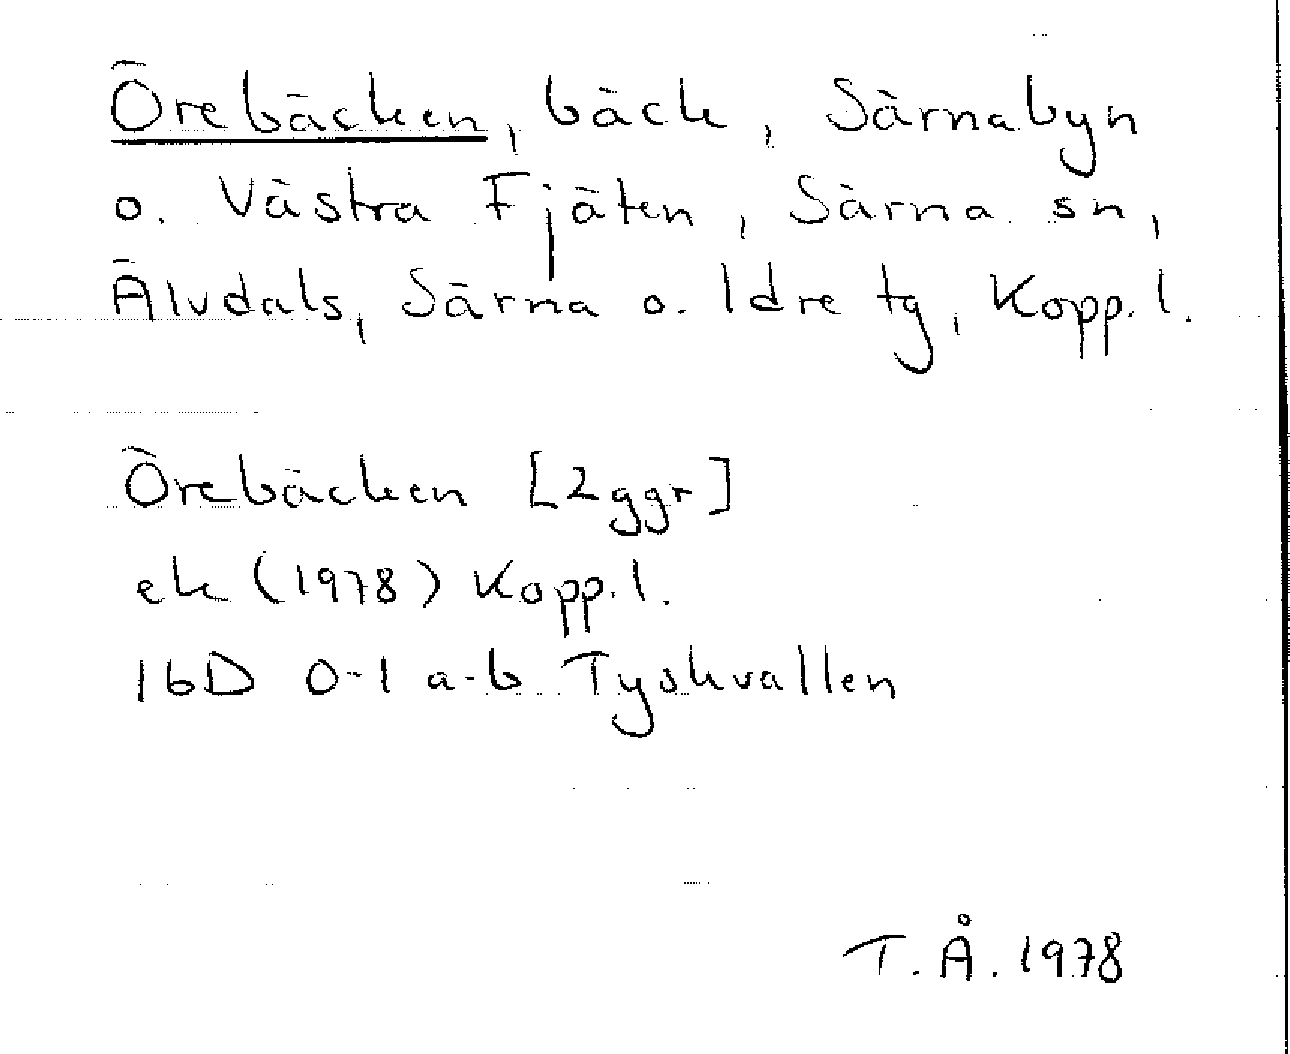 Örebäcken, bäck, Särnabyn
o. Västra Fjäten, Särna sn,
Älvdals, Särna o. Idre tg, Kopp. l.
Örebäcken [2ggr]
ek (1978) Kopp. l.
16D 0-1 a-b Tyskvallen
T. Å. 1978